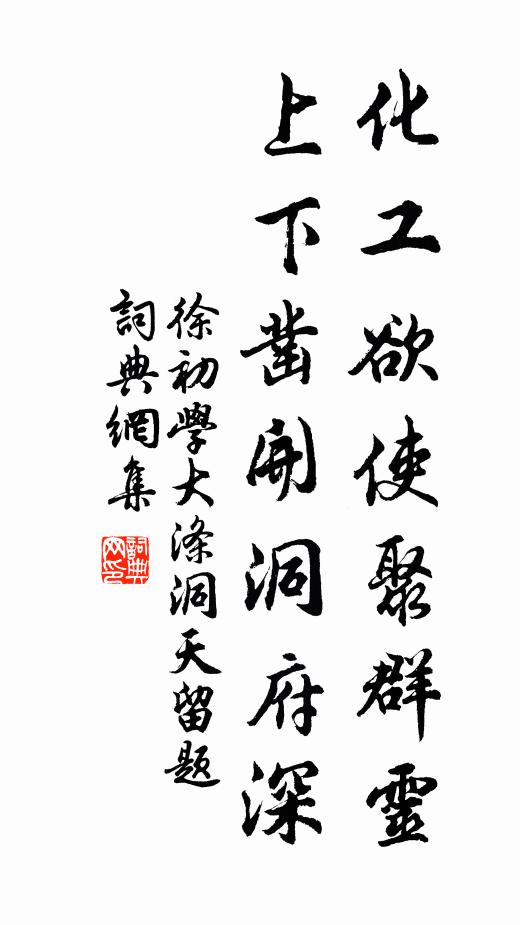 化工欲使聚群靈
上下凿開洞府深
徐初學大滌洞天留题
詞典網集
詞典
网印